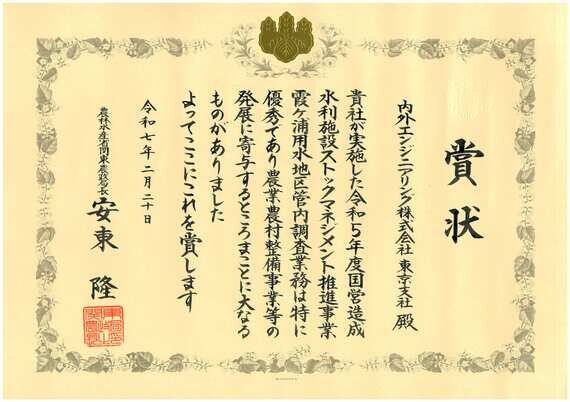 賞状
内外エンジニアリング株式会社 東京支社 殿
貴社が実施した令和5年度国営造成
水利施設ストックマネジメント推進事業
霞ヶ浦用水地区管内調査業務は特に
優秀であり農業農村整備事業等の
発展に寄与するところまことに大なる
ものがありました
よってここにこれを賞します
令和七年二月二十日
農林水産省関東農政局長 安東 隆